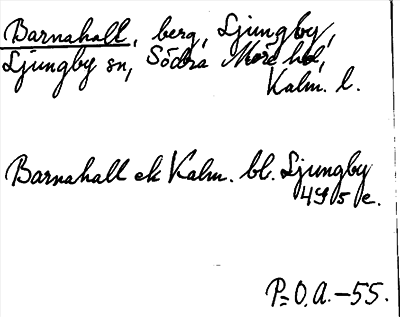 Barnahall, berg, Ljungby,
Ljungby sn, Södra Möre hd,
Kalm. l.
Barnahall ek Kalm. bl. Ljungby
4 5 e.
P=O.A.-55.